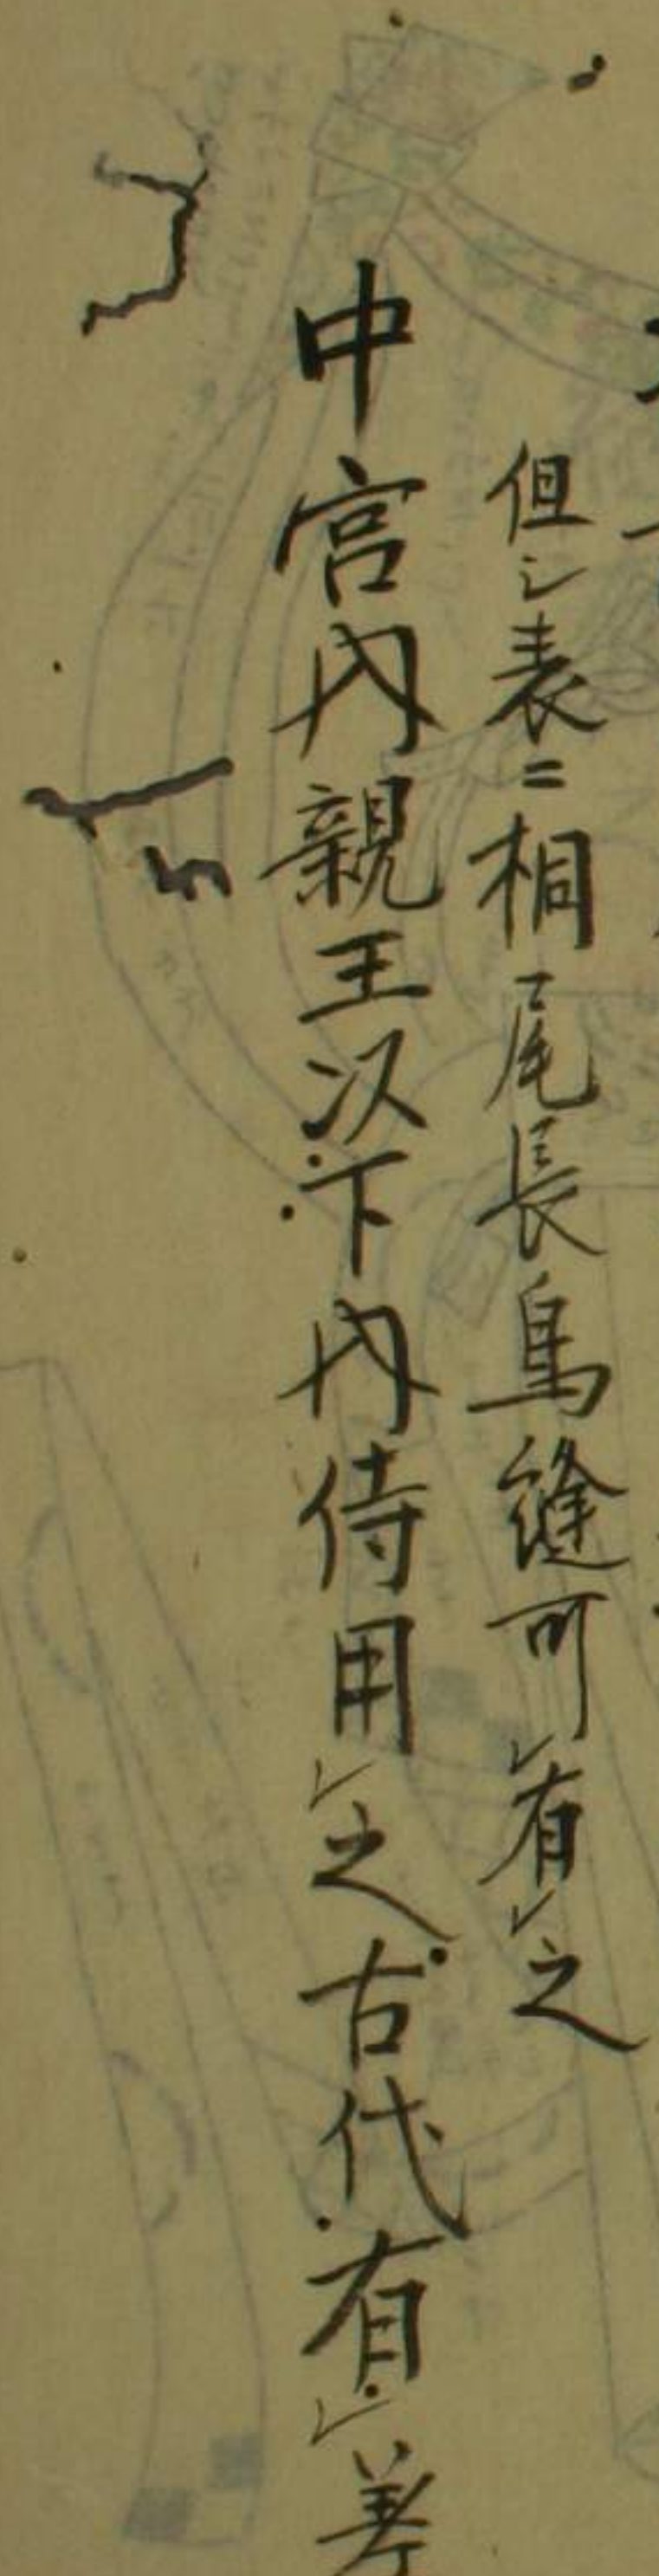 但シ表ニ桐尾長鳥縫可㆑有㆑之
中宮内親王以下内侍用㆑之古代有㆑差